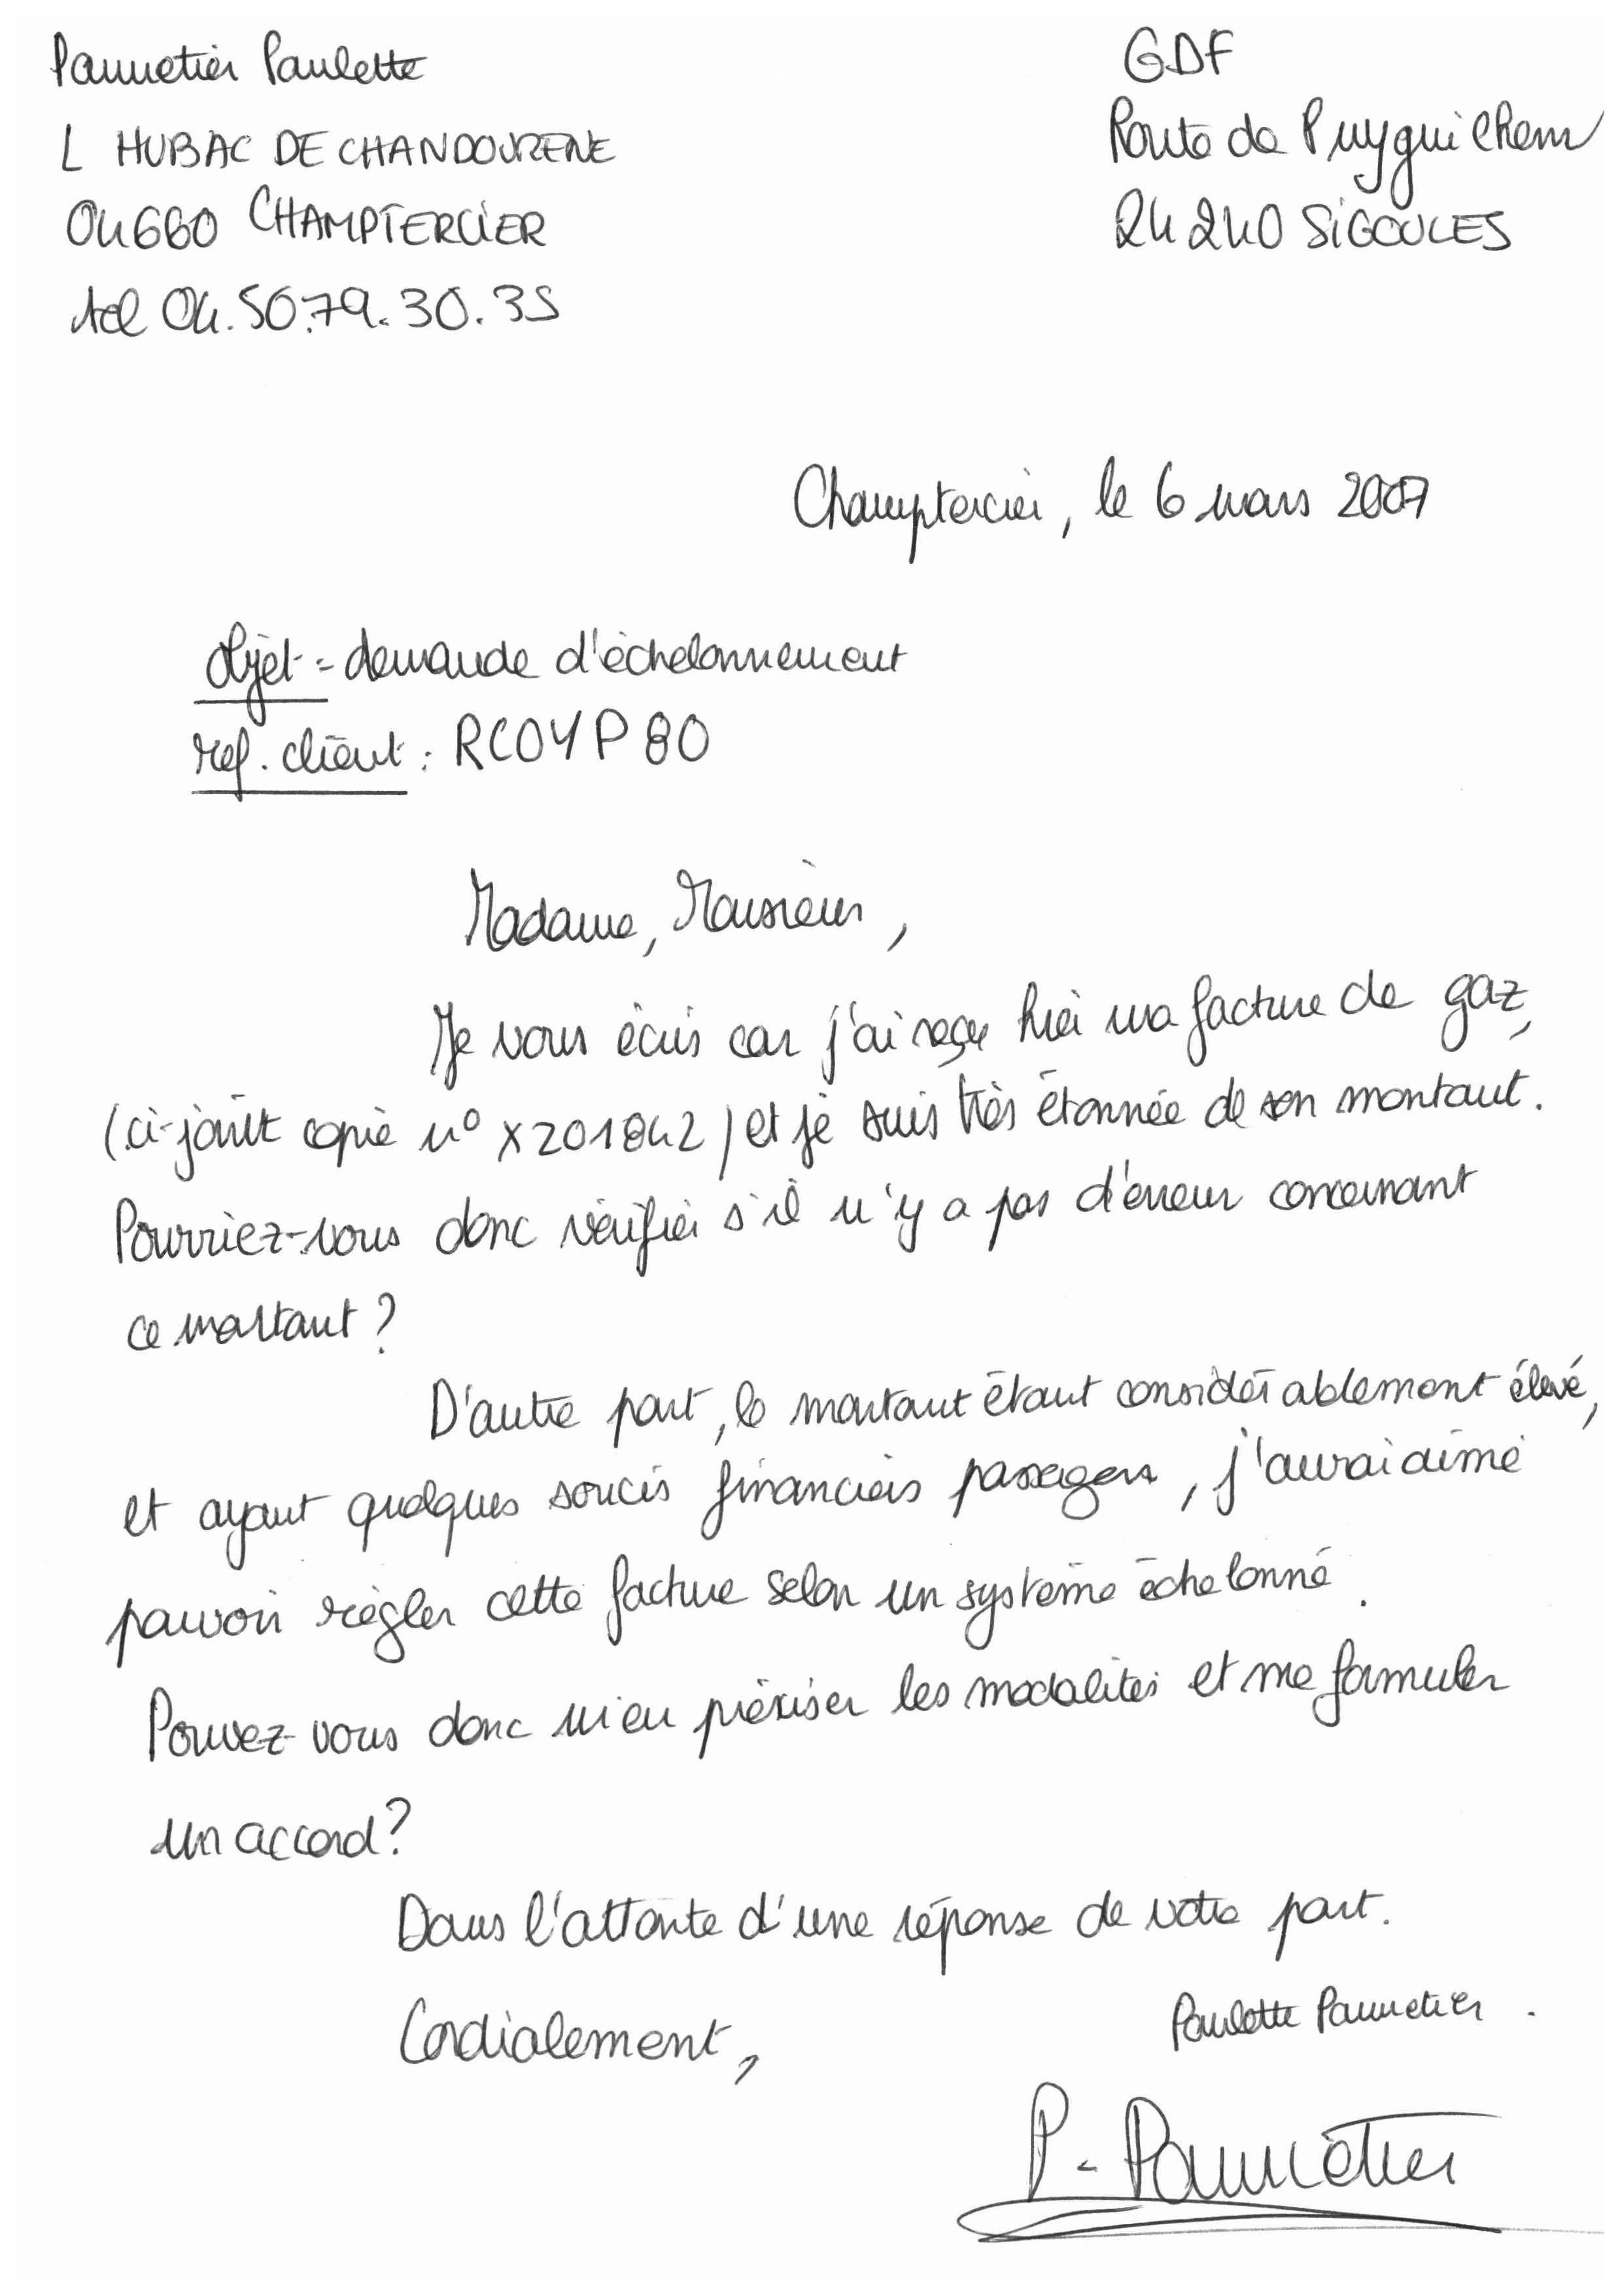 Pannetier Paulette
L HUBAC DE CHANDOURENE
04660 CHAMPTERCIER
tel 04.50.79.30.35
GDF
Route de Puyguilhem
24240 SIGOULES
Champtercier, le 6 mars 2007
Objet : demande d'échelonnement
ref. client : RCOYP80
Madame, Monsieur,
Je vous écris car j'ai reçu hier ma facture de gaz,
(ci-joint copie n° X201842) et je suis très étonnée de son montant.
Pourriez-vous donc vérifier s'il n'y a pas d'erreur concernant
ce montant ?
D'autre part, le montant étant considérablement élevé,
et ayant quelques soucis financiers passagers, j'aurai aimé
pouvoir régler cette facture selon un système échelonné.
Pouvez-vous donc m'en préciser les modalités et me formuler
un accord ?
Dans l'attente d'une réponse de votre part.
Cordialement,
Paulette Pannetier.
P. Pannetier